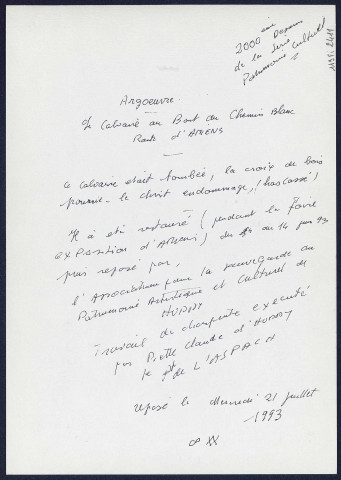 2000 ème Dessin
de la Série
Patrimoine Culturel
1151 2411
Argoeuvre
Le Calvaire au Bout du Chemin Blanc
Route d'AMIENS
Le Calvaire était tombée, la croix de bois
pourrie - le christ endommagé, (bras cassé)
Il à été restauré (pendant la Foire
exposition d'Amiens) du au 14 juin 93
puis reposé par,
l'Association pour la sauvegarde du
Patrimoine Artistique et Culturel de
Travail de charpente exécuté
par Piette Claude d'
le de L'ASPACH
reposé le Mercredi 21 juillet
1993